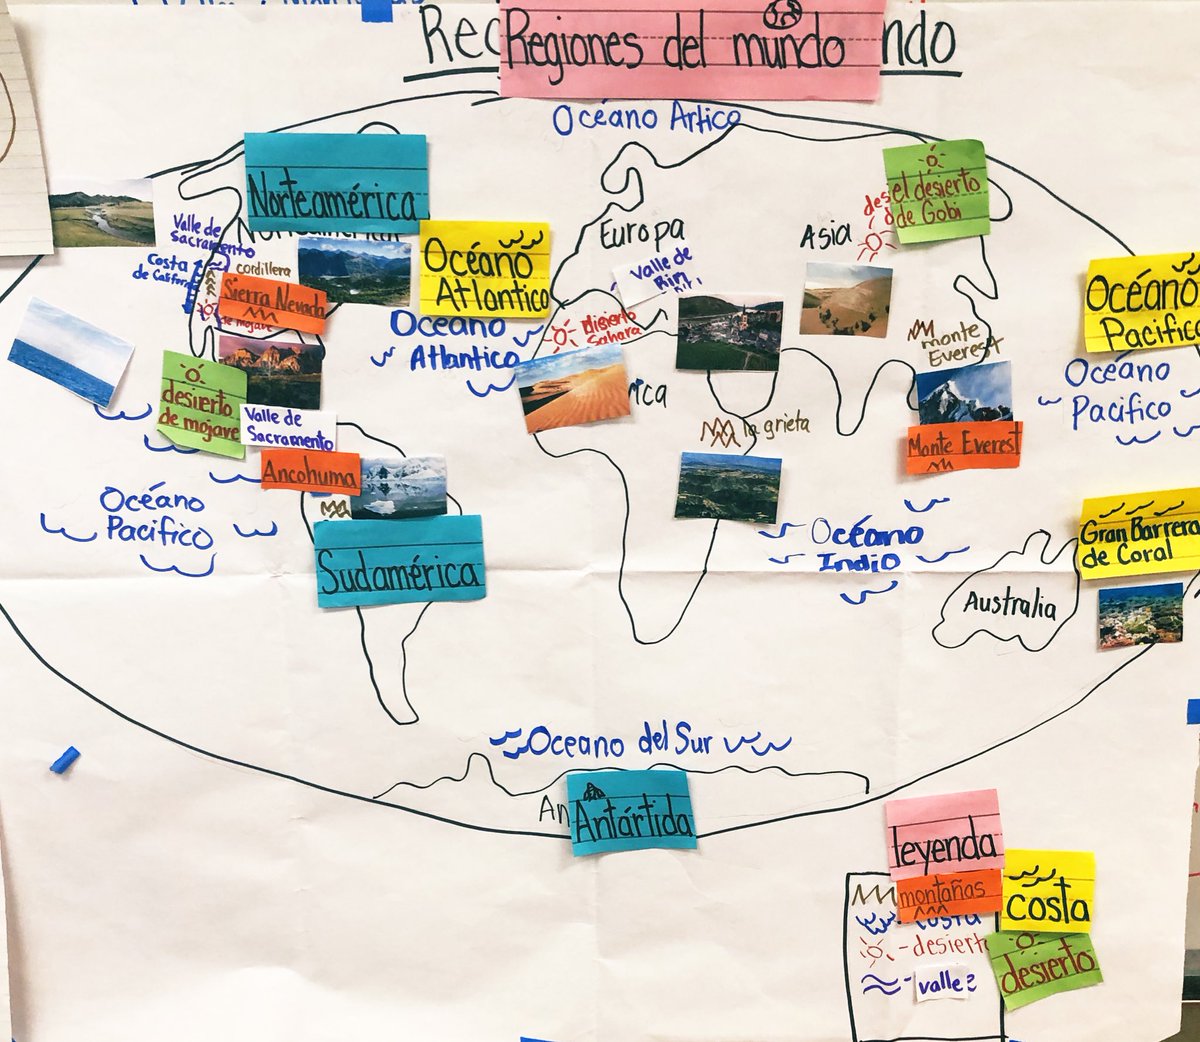 Regiones del mundo
ndo
Océano Artico
Norteamérica
el desierto
de Gobi
Valle de
Sacramento
Costa
de Californ
cordillera
Sierra Nevada
de mojave
Océano
Atlantico
Océano
Atlantico
Europa
Valle de
Rin
Asia
desierto
Sahara
Océano
Pacifico
Océano
Pacifico
monte
Everest
Monte Everest
desierto
de mojave
Valle de
Sacramento
Ancohuma
ica
la grieta
Océano
Pacifico
Océano
Indio
Gran Barrera
de Coral
Sudamérica
Australia
Oceano del Sur
An
Antártida
leyenda
montañas
costa
costa
-desiert
desierto
valle